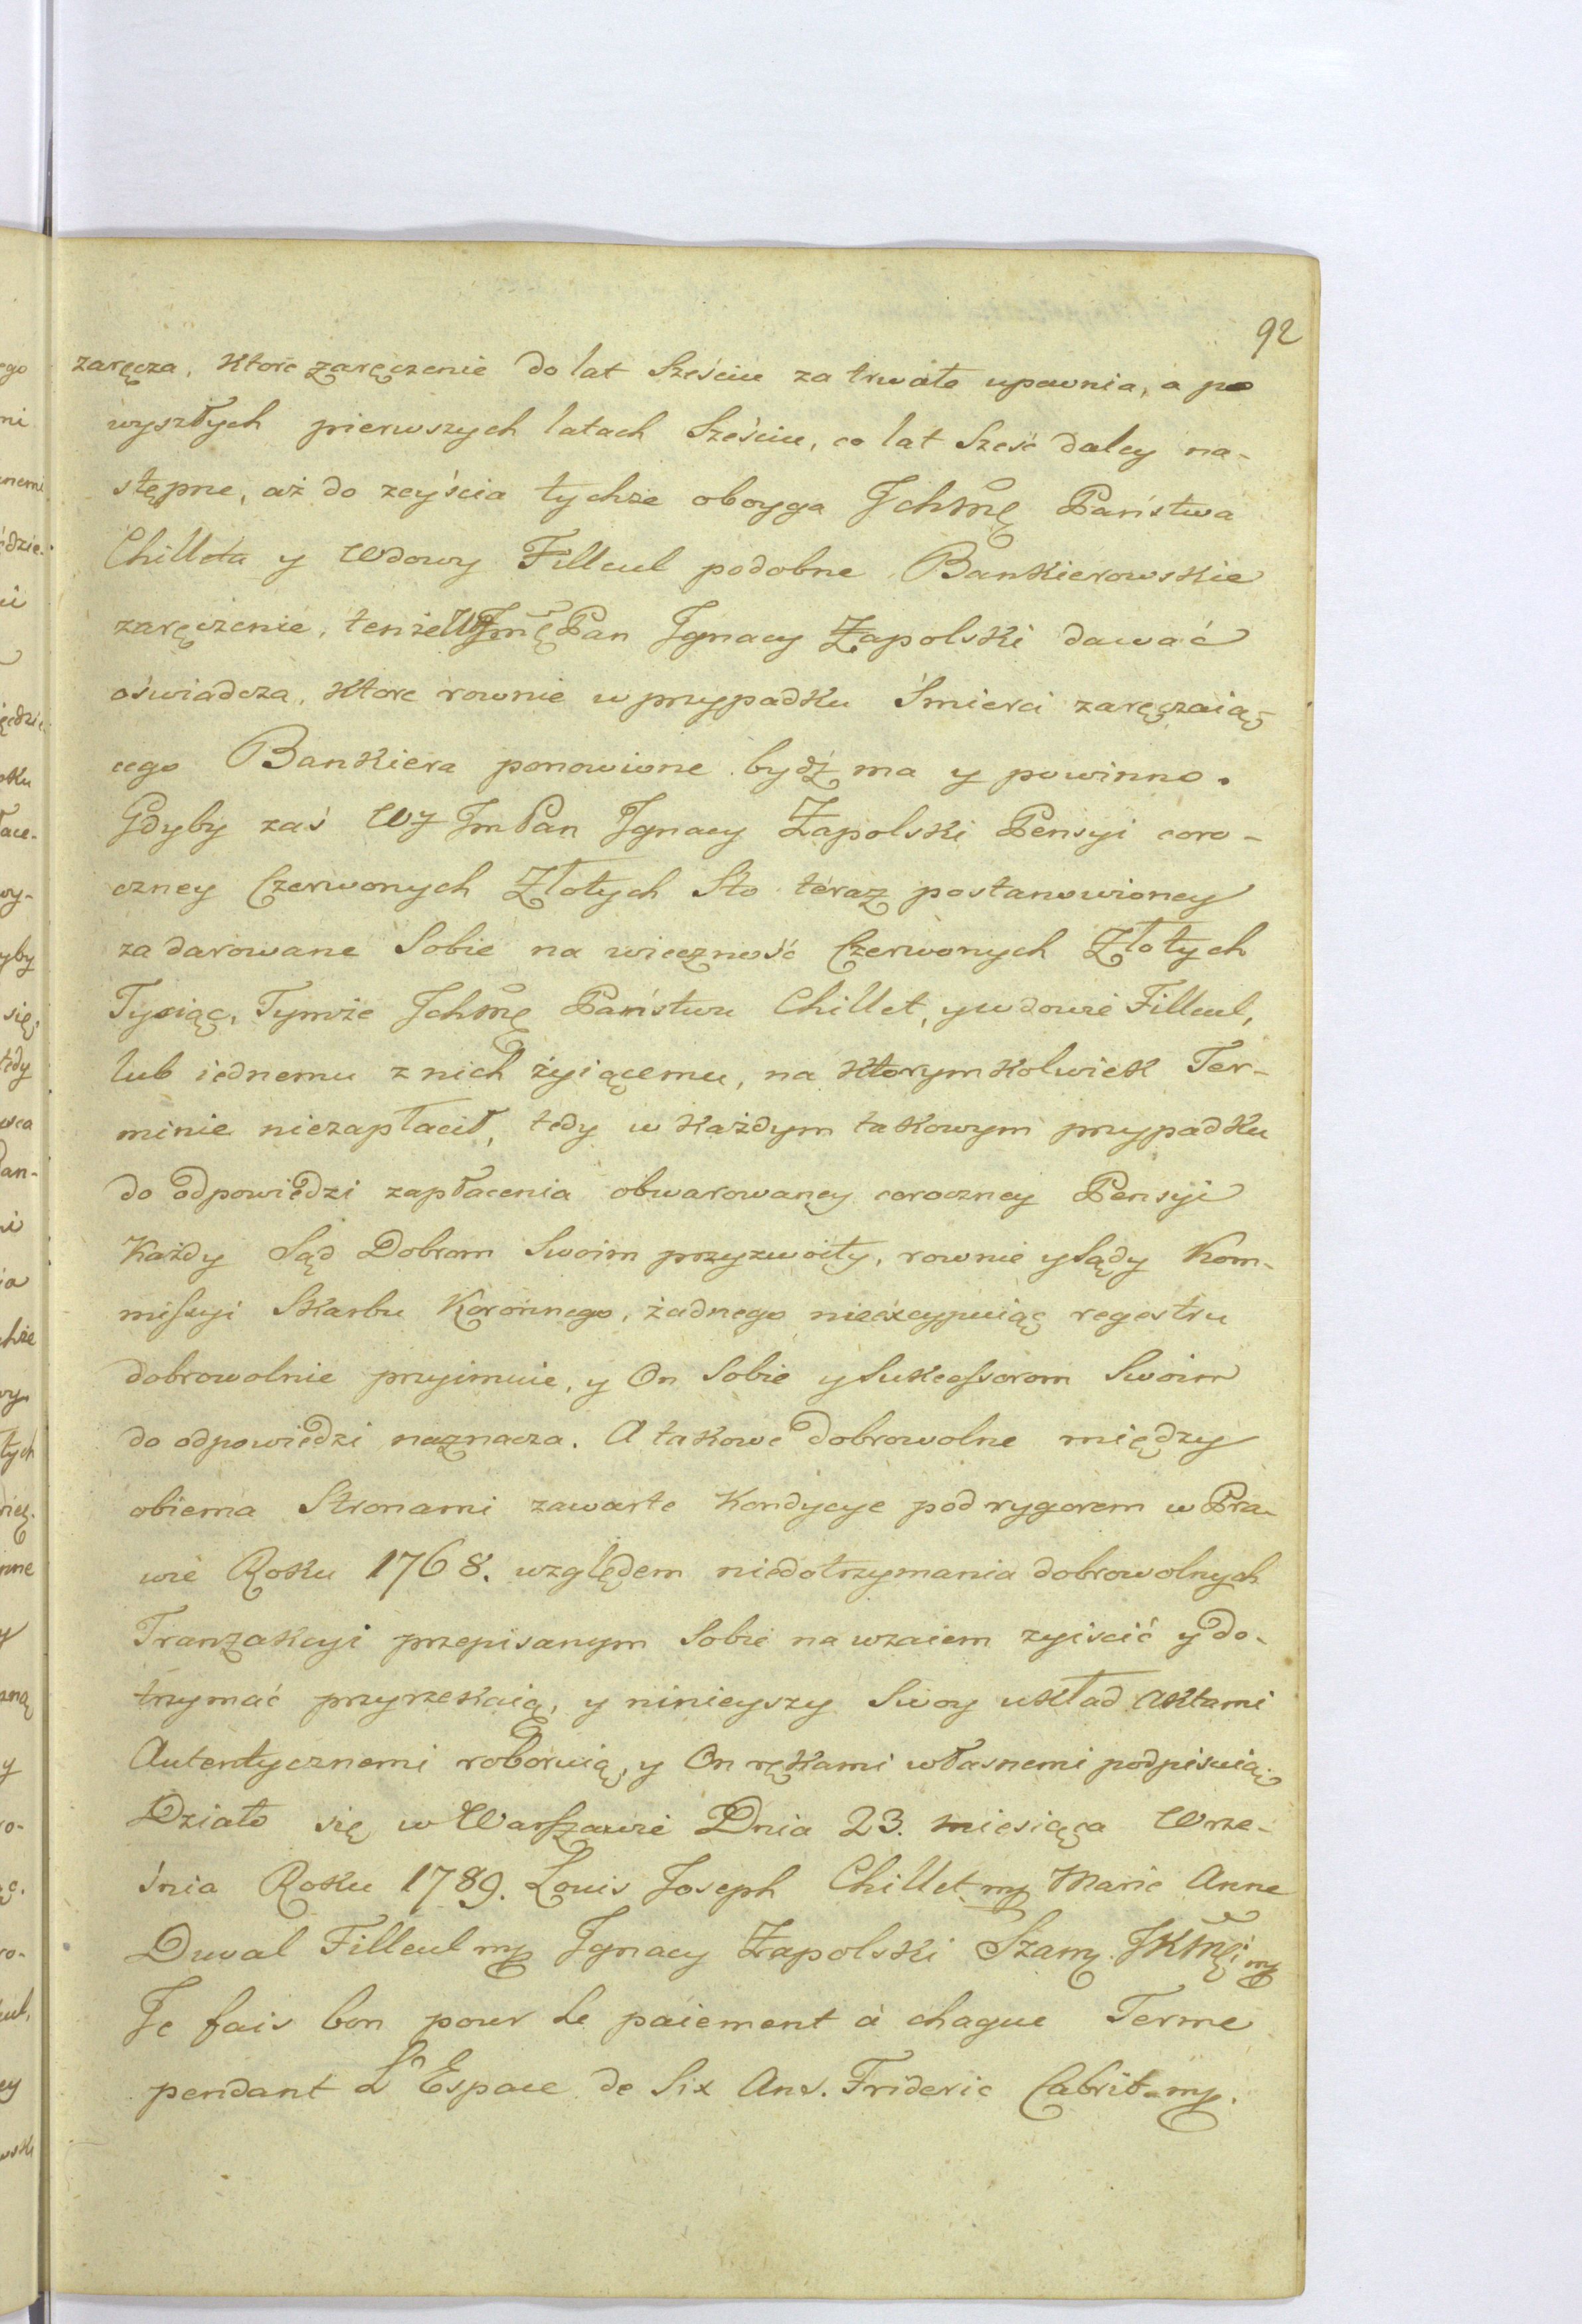 92
zaręcza, ktore zaręczenie do lat Sześciu za trwałe upewnia, a po
wyszłych pierwszych latach Sześciu, co lat Sześć daley na-
stępne, aż do zeyścia tychże oboyga Ichmę Państwa
Chilleta y Wdowy Filleul podobne Bankierowskie
zaręczenie, tenże WJmę Pan Ignacy Zapolski dawać
oświadcza, ktore rownie w przypadku Śmierci zaręczaią-
cego Bankiera ponowione bydź ma y powinno.
Gdyby zaś WJ Jm Pan Ignacy Zapolski Pensyi coro-
czney Czerwonych Złotych Sto teraz postanowioney
za darowane Sobie na wieczność Czerwonych Złotych
Tysiąc, Tymże Ichmę Państwu Chillet, y wdowie Filleul,
lub iednemu z nich żyiącemu, na ktorymkolwiek Ter-
minie niezapłacił, tedy w każdym takowym przypadku
do odpowiedzi zapłacenia obwarowaney coroczney Pensyi
Każdy Sąd Dobrom Swoim przyzwoity, rownie y Sądy Kom-
missyi Skarbu Koronnego, żadnego nieexcypuiąc regestru
dobrowolnie przyimuie, y On Sobie y Sukcessorom Swoim
do odpowiedzi naznacza. A takowe dobrowolne między
obiema Stronami zawarte Kondycye pod rygorem w Pra-
wie Roku 1768. względem niedotrzymania dobrowolnych
Tranzakcyi przepisanym Sobie nawzaiem zyiscić y do-
trzymać przyrzekaią, y ninieyszy Swoy układ Aktami
Autentycznemi roboruią, y On rękami własnemi podpisuią.
Działo się w Warszawie Dnia 23. miesiąca Wrze-
śnia Roku 1789. Louis Joseph Chillet mp Marie Anne
Duval Filleul mp Ignacy Zapolski Szam. JKMci mp
Je fais bon pour Le paiement à chaque Terme
pendant L'Espace de Six Ans. Frideric Cabrit mp.